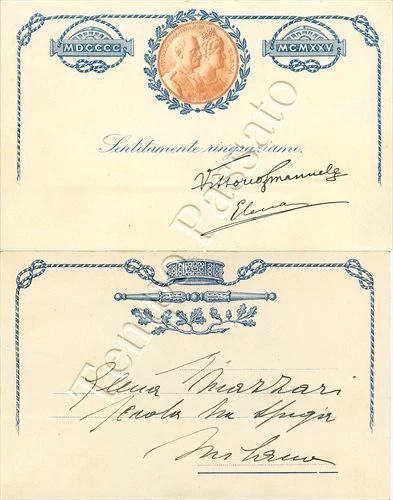 MDCCCC
MCMXXV
Sentitamente ringraziamo.
Vittorio Emanuele
Elena
Elena
Scuola
Milano
Tempo Passato